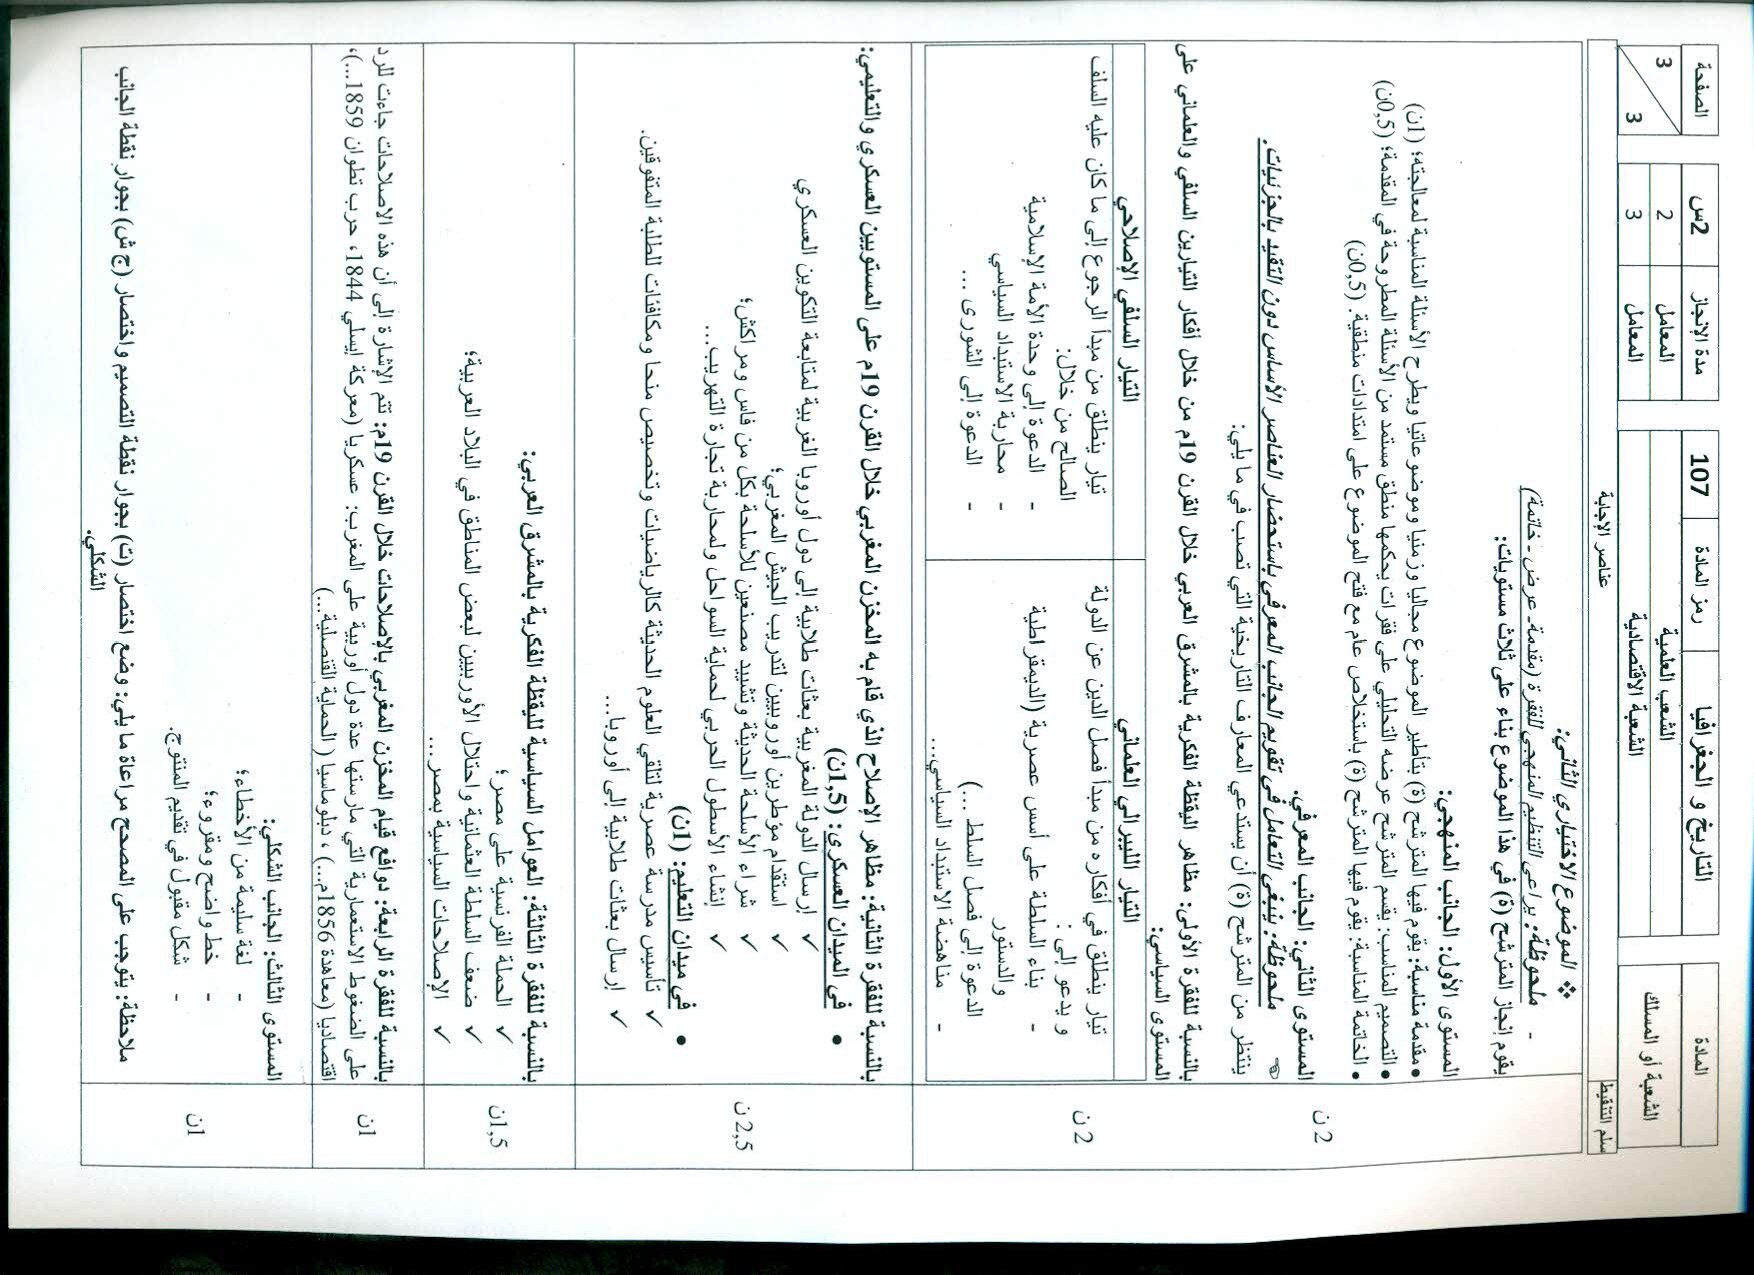 الصفحة
3
3
2س
مدة الإنجاز
107
رمز المادة
التاريخ و الجغرافيا
المادة
2
المعامل
الشعب العلمية
الشعبة أو المسلك
3
المعامل
الشعبة الاقتصادية
عناصر الإجابة
سلم التنقيط
❖ الموضوع الاختياري الثاني:
- ملحوظة: يراعى التنظيم المنهجي للفقرة (مقدمة- عرض - خاتمة)
يقوم إنجاز المترشح (ة) في هذا الموضوع بناء على ثلاث مستويات:
المستوى الأول: الجانب المنهجي:
• مقدمة مناسبة: يقوم فيها المترشح (ة) بتأطير الموضوع مجاليا وزمنيا وموضوعاتيا ويطرح الأسئلة المناسبة لمعالجته؛ (1ن)
• التصميم المناسب: يقسم المترشح عرضه التحليلي على فقرات يحكمها منطق مستمد من الأسئلة المطروحة في المقدمة؛ (0,5ن)
• الخاتمة المناسبة: يقوم فيها المترشح (ة) باستخلاص عام مع فتح الموضوع على امتدادات منطقية. (0,5ن)
2 ن
المستوى الثاني: الجانب المعرفي.
ملحوظة: ينبغي التعامل في تقويم الجانب المعرفي باستحضار العناصر الأساس دون التقيد بالجزئيات.
ينتظر من المترشح (ة) أن يستدعي المعارف التاريخية التي تصب في ما يلي:
بالنسبة للفقرة الأولى: مظاهر اليقظة الفكرية بالمشرق العربي خلال القرن 19م من خلال أفكار التيارين السلفي والعلماني على
المستوى السياسي:
التيار الليبرالي العلماني
التيار السلفي الإصلاحي
تيار ينطلق في أفكاره من مبدأ فصل الدين عن الدولة
و يدعو إلى :
- بناء السلطة على أسس عصرية (الديمقراطية
والدستور
الدعوة إلى فصل السلط ...)
- مناهضة الاستبداد السياسي....
تيار ينطلق من مبدأ الرجوع إلى ما كان عليه السلف
الصالح من خلال:
- الدعوة إلى وحدة الأمة الإسلامية
- محاربة الاستبداد السياسي
- الدعوة إلى الشورى ...
2 ن
بالنسبة للفقرة الثانية: مظاهر الإصلاح الذي قام به المخزن المغربي خلال القرن 19م على المستويين العسكري والتعليمي:
• في الميدان العسكري: (1,5ن)
✓ إرسال الدولة المغربية بعثات طلابية إلى دول أوروبا الغربية لمتابعة التكوين العسكري
✓ استقدام مؤطرين أوروبيين لتدريب الجيش المغربي؛
✓ شراء الأسلحة الحديثة وتشييد مصنعين للأسلحة بكل من فاس ومراكش؛
✓ إنشاء الأسطول الحربي لحماية السواحل ولمحاربة تجارة التهريب...
• في ميدان التعليم: (1ن)
✓ تأسيس مدرسة عصرية لتلقي العلوم الحديثة كالرياضيات وتخصيص منحا ومكافئات للطلبة المتفوقين.
✓ إرسال بعثات طلابية إلى أوروبا...
2,5 ن
بالنسبة للفقرة الثالثة: العوامل السياسية لليقظة الفكرية بالمشرق العربي:
✓ الحملة الفرنسية على مصر ؛
✓ ضعف السلطة العثمانية واحتلال الأوربيين لبعض المناطق في البلاد العربية؛
✓ الإصلاحات السياسية بمصر....
1,5ن
بالنسبة للفقرة الرابعة: دوافع قيام المخزن المغربي بالإصلاحات خلال القرن 19م: تتم الإشارة إلى أن هذه الاصلاحات جاءت للرد
على الضغوط الاستعمارية التي مارستها عدة دول أوربية على المغرب: عسكريا (معركة إيسلي 1844، حرب تطوان 1859...)،
اقتصاديا (معاهدة 1856م...) ، دبلوماسيا ( الحماية القنصلية...)
1ن
المستوى الثالث: الجانب الشكلي:
- لغة سليمة من الأخطاء؛
- خط واضح ومقروء؛
- شكل مقبول في تقديم المنتوج.
1ن
ملاحظة: يتوجب على المصحح مراعاة ما يلي: وضع اختصار (ت) بجوار نقطة التصميم واختصار (ج ش) بجوار نقطة الجانب
الشكلي.